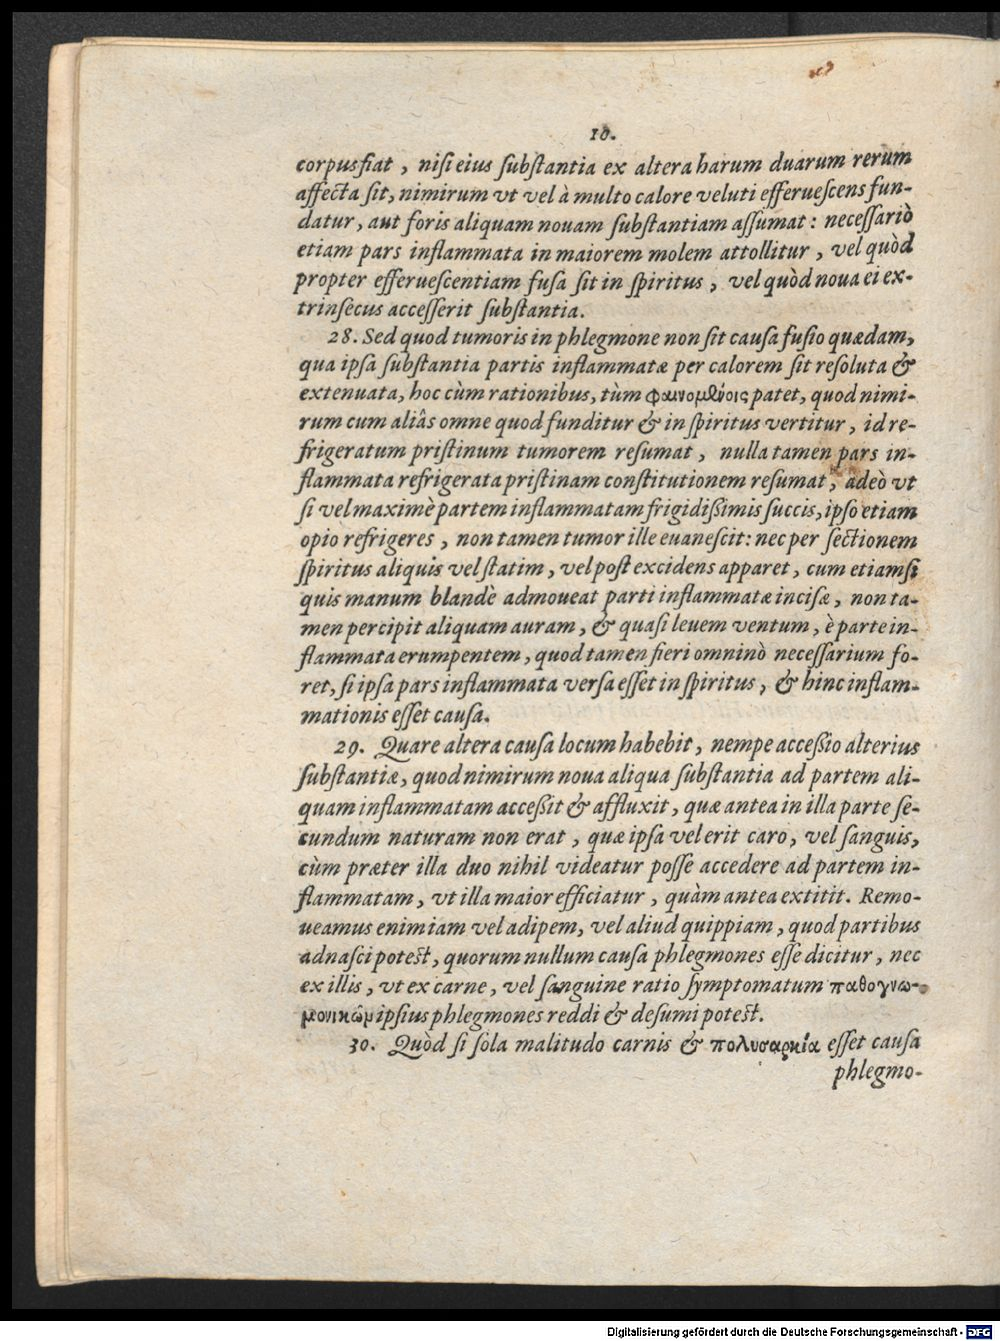 10.
corpus fiat, nisi eius substantia ex altera harum duarum rerum
affecta sit, nimirum vt vel à multo calore veluti efferuescens fun-
datur, aut foris aliquam nouam substantiam assumat: necessariò
etiam pars inflammata in maiorem molem attollitur, vel quòd
propter efferuescentiam fusa sit in spiritus, vel quòd noua ei ex-
trinsecus accesserit substantia.
28. Sed quod tumoris in phlegmone non sit causa fusio quædam,
qua ipsa substantia partis inflammatæ per calorem sit resoluta &
extenuata, hoc cùm rationibus, tùm φαινομένοις patet, quod nimi-
rum cum aliâs omne quod funditur & in spiritus vertitur, id re-
frigeratum pristinum tumorem resumat, nulla tamen pars in-
flammata refrigerata pristinam constitutionem resumat, adeò vt
si vel maximè partem inflammatam frigidißimis succis, ipso etiam
opio refrigeres, non tamen tumor ille euanescit: nec per sectionem
spiritus aliquis vel statim, vel post excidens apparet, cum etiamsi
quis manum blandè admoueat parti inflammatæ incisæ, non ta-
men percipit aliquam auram, & quasi leuem ventum, è parte in-
flammata erumpentem, quod tamen fieri omninò necessarium fo-
ret, si ipsa pars inflammata versa esset in spiritus, & hinc inflam-
mationis esset causa.
29. Quare altera causa locum habebit, nempe acceßio alterius
substantiæ, quod nimirum noua aliqua substantia ad partem ali-
quam inflammatam acceßit & affluxit, quæ antea in illa parte se-
cundum naturam non erat, quæ ipsa vel erit caro, vel sanguis,
cùm præter illa duo nihil videatur posse accedere ad partem in-
flammatam, vt illa maior efficiatur, quàm antea extitit. Remo-
ueamus enim iam vel adipem, vel aliud quippiam, quod partibus
adnasci potest, quorum nullum causa phlegmones esse dicitur, nec
ex illis, vt ex carne, vel sanguine ratio symptomatum παθογνω-
μονικῶμ ipsius phlegmones reddi & desumi potest.
30. Quòd si sola malitudo carnis & πολυσαρκία esset causa
phlegmo-
Digitalisierung gefördert durch die Deutsche Forschungsgemeinschaft - DFG